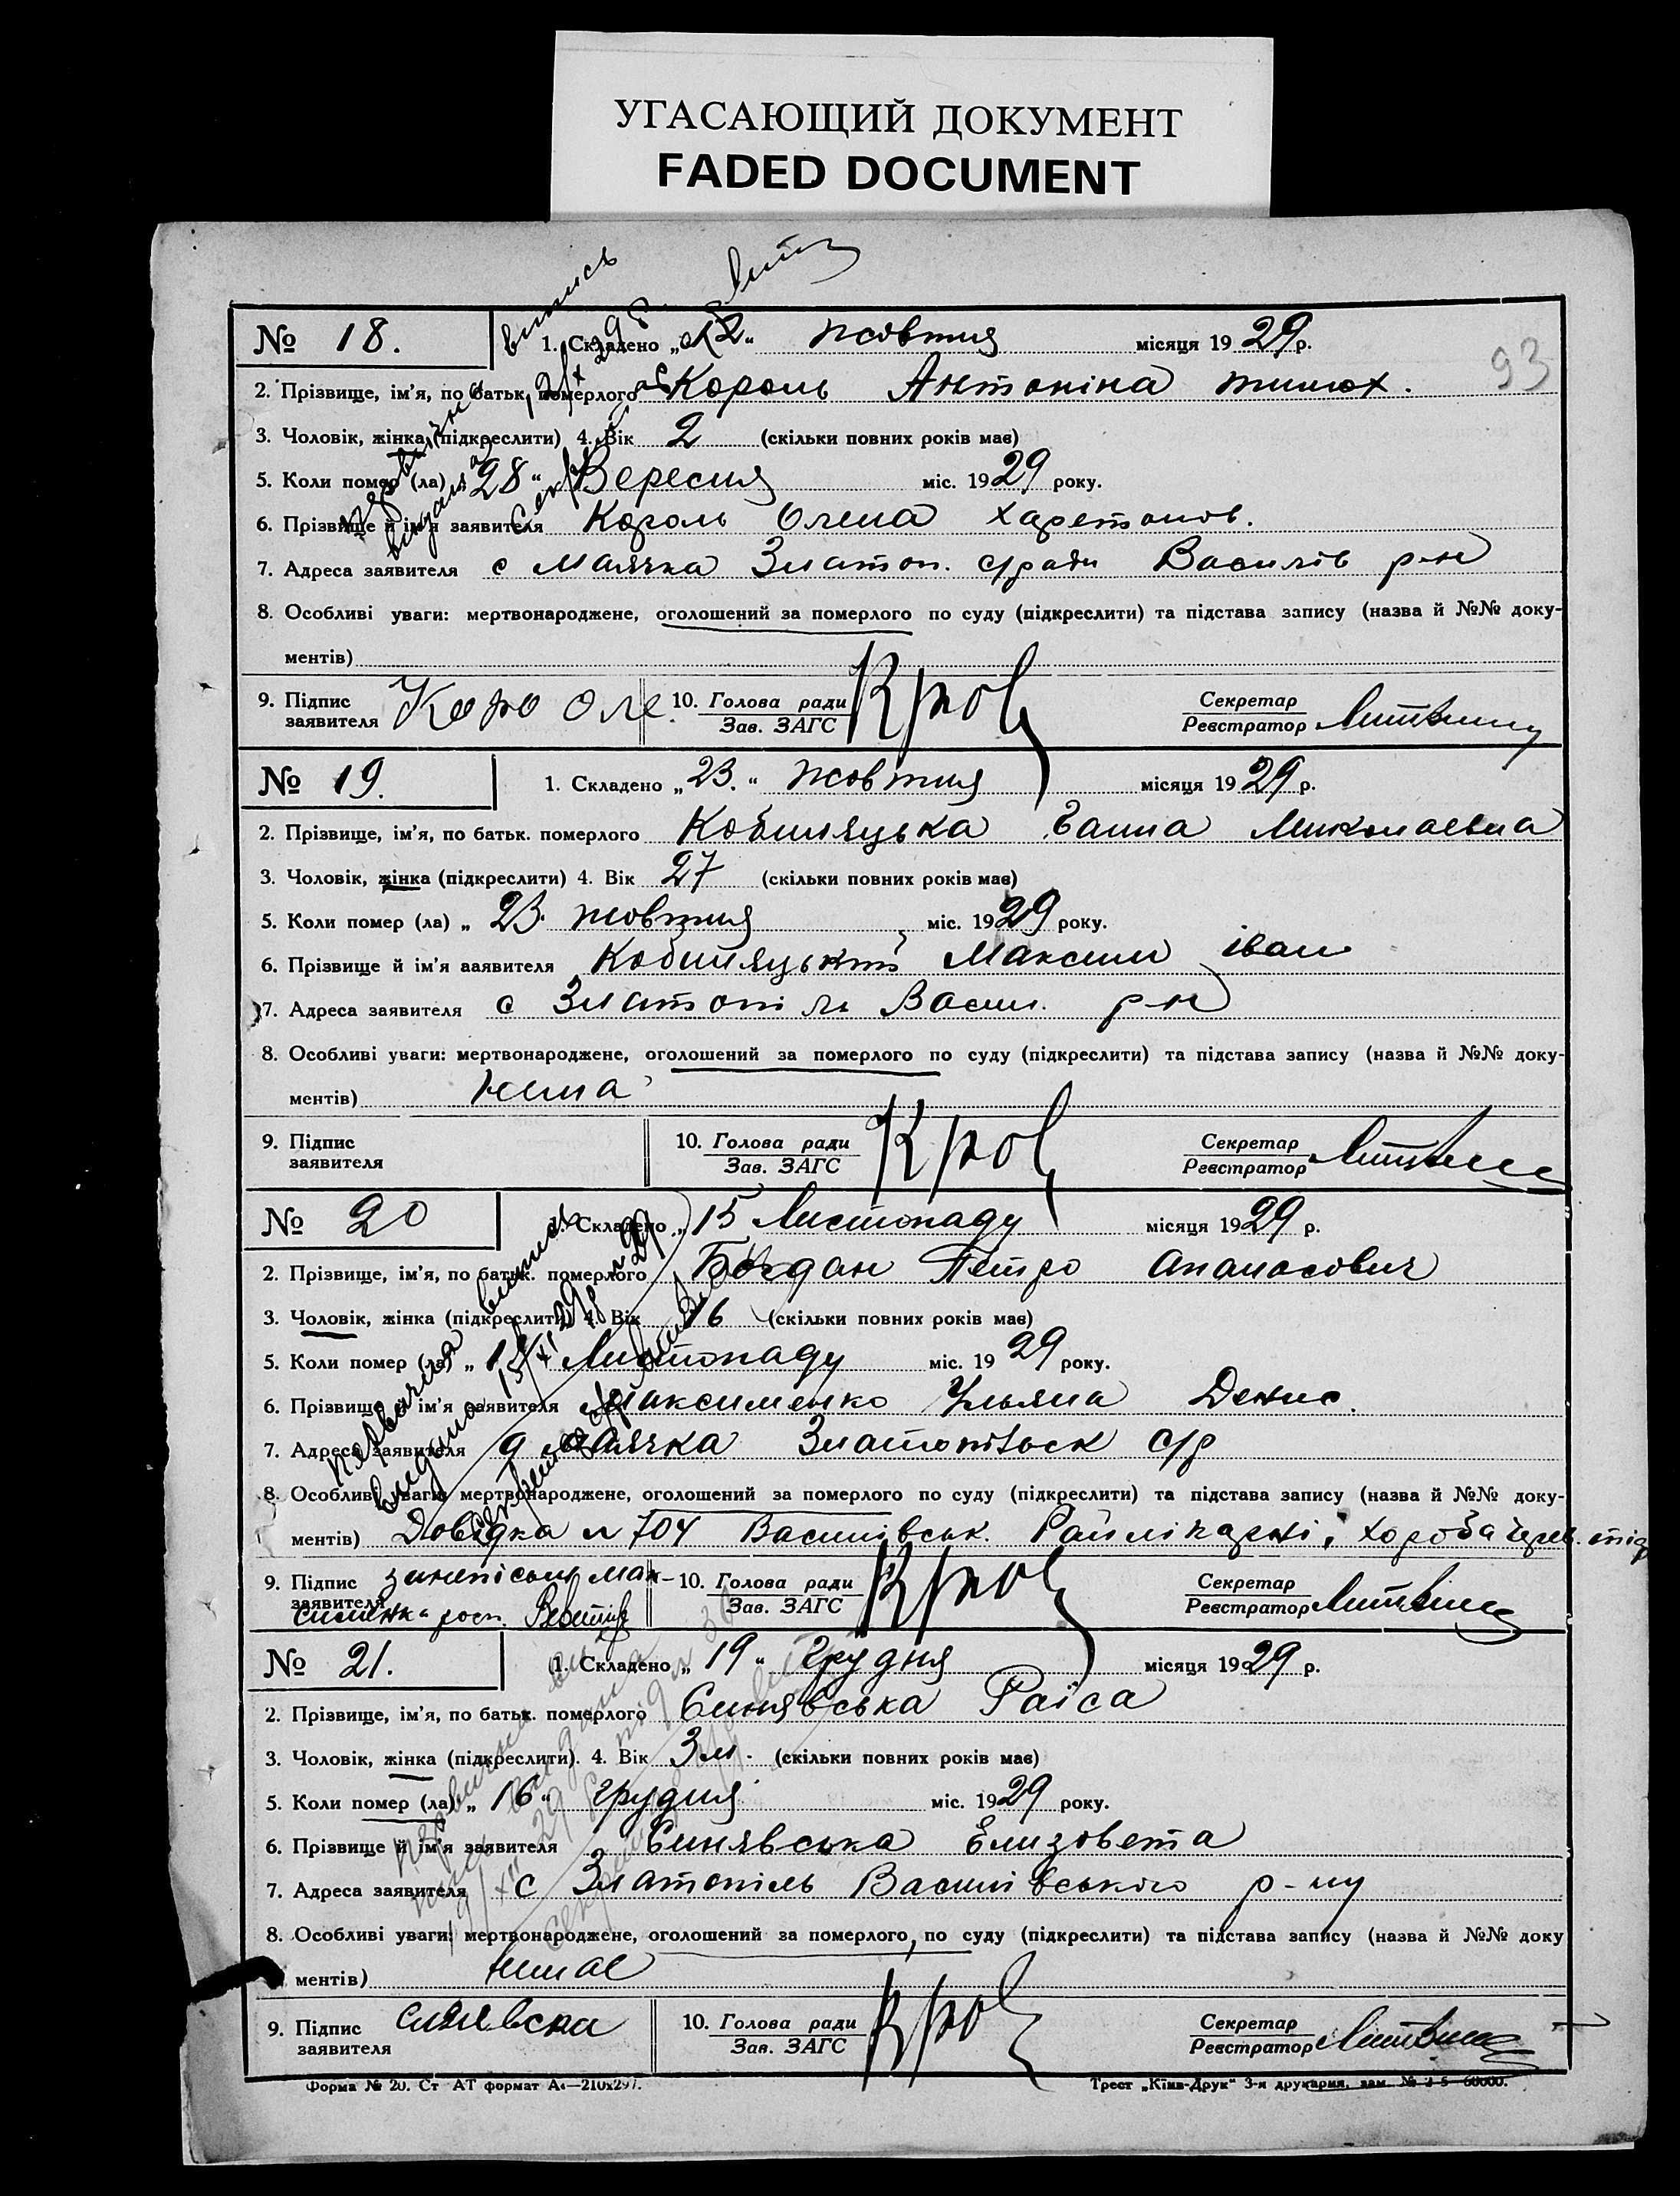 УГАСАЮЩИЙ ДОКУМЕНТ
FADED DOCUMENT
93
№ 18.
1. Складено „ 2 “ жовтня місяця 19 29 р.
2. Прізвище, ім'я, по батьк. померлого Король Антоніна тимох.
3. Чоловік, жінка (підкреслити) 4. Вік 2 (скільки повних років має)
5. Коли помер (ла) „ 28 “ Вересня міс. 19 29 року.
6. Прізвище й ім'я заявителя Король Олена Харетонов.
7. Адреса заявителя с Маячка Златоп. с/ради Василів р-н
8. Особливі уваги: мертвонароджене, оголошений за померлого по суду (підкреслити) та підстава запису (назва й №№ доку-
ментів)
9. Підпис заявителя Коро Оле.
10. Голова ради
Зав. ЗАГС
Секретар
Реєстратор Литвин
№ 19.
1. Складено „ 23. “ жовтня місяця 19 29 р.
2. Прізвище, ім'я, по батьк. померлого Кобиляцька Ганна Миколаевна
3. Чоловік, жінка (підкреслити) 4. Вік 27 (скільки повних років має)
5. Коли помер (ла) „ 23. жовтня міс. 19 29 року.
6. Прізвище й ім'я аявителя Кобиляцький Максим іван
7. Адреса заявителя с Златопіль Васил. р-н
8. Особливі уваги: мертвонароджене, оголошений за померлого по суду (підкреслити) та підстава запису (назва й №№ доку-
ментів) нема
9. Підпис заявителя
10. Голова ради
Зав. ЗАГС
Секретар
Реєстратор Литвин
№ 20
1. Складено „ 15 Листопаду місяця 19 29 р.
2. Прізвище, ім'я, по батьк. померлого Богдан Петро Опанасович
3. Чоловік, жінка (підкреслити) 4. Вік 16 (скільки повних років має)
5. Коли помер (ла) „ Листопаду міс. 19 29 року.
6. Прізвище й ім'я заявителя Максименко Ульяна Денис.
7. Адреса заявителя Маячка Златопільск с/р
8. Особливі уваги: мертвонароджене, оголошений за померлого по суду (підкреслити) та підстава запису (назва й №№ доку-
ментів) Довідка № 704 Василівськ. Райлікарні, хороба черев. тіф
9. Підпис заявителя
10. Голова ради
Зав. ЗАГС
Секретар
Реєстратор Литвин
№ 21.
1. Складено „ 19 “ Грудня місяця 19 29 р.
2. Прізвище, ім'я, по батьк. померлого Синявська Раїса
3. Чоловік, жінка (підкреслити). 4. Вік 3 м. (скільки повних років має)
5. Коли помер (ла) „ 16 “ грудня міс. 19 29 року.
6. Прізвище й ім'я заявителя Синявська Елизовета
7. Адреса заявителя с Златопіль Василівського р-ну
8. Особливі уваги: мертвонароджене, оголошений за померлого, по суду (підкреслити) та підстава запису (назва й №№ доку
ментів) немає
9. Підпис заявителя
10. Голова ради
Зав. ЗАГС
Секретар
Реєстратор Литвин
Форма № 20. Ст АТ формат А4—210х297.
Трест „Київ-Друк“ 3-я друкарня, зам.